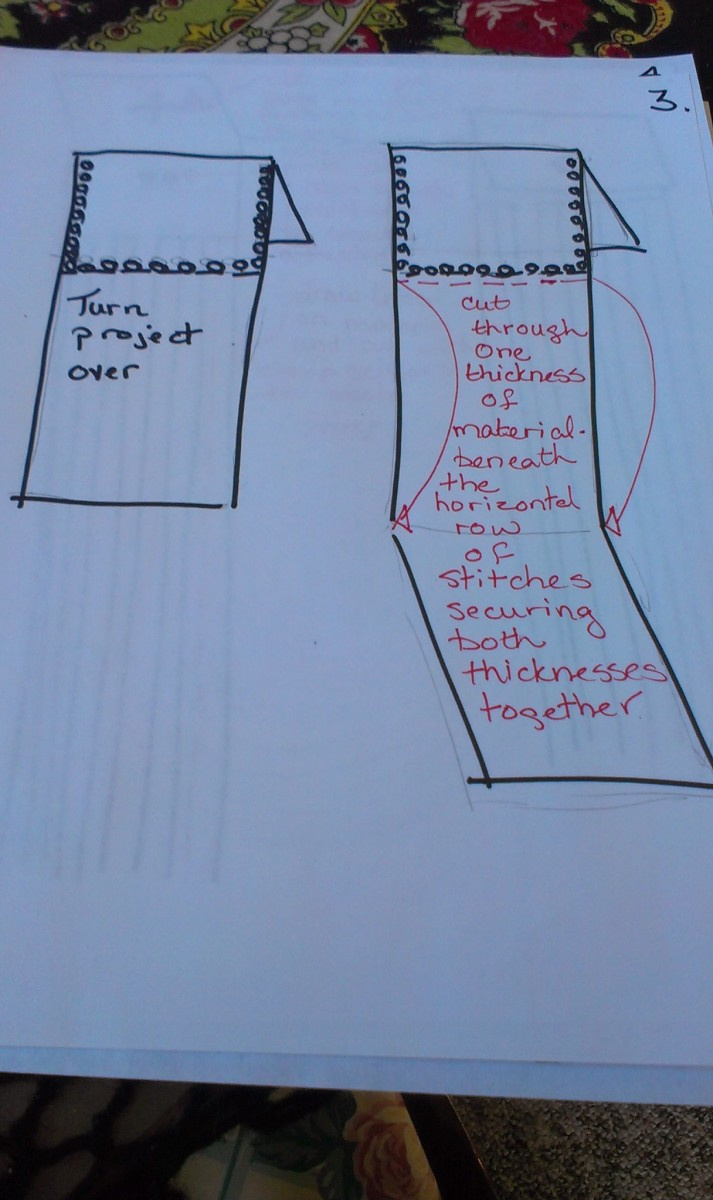 3.
Turn
project
over
cut
through
one
thickness
of
material.
beneath
the
horizontal
row
of
stitches
securing
both
thicknesses
together